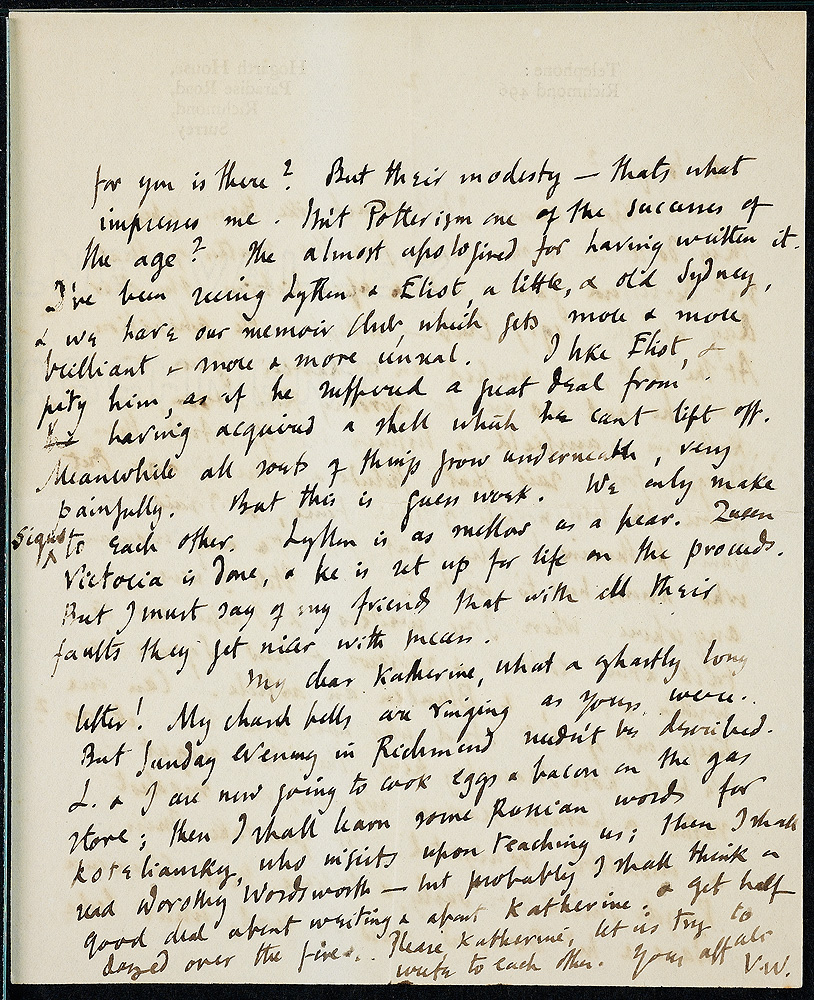 Telephone:
Richmond 496
Hogarth House,
Paradise Road,
Richmond,
Surrey.
for you is there? But their modesty — thats what
impresses me. Isnt Potterism one of the successes of
the age? She almost apologised for having written it.
I've been seeing Lytton & Eliot, a little, & old Sydney,
& we have our memoir club, which gets more & more
brilliant & more & more unreal. I like Eliot, &
pity him, as if he suffered a great deal from
having acquired a shell which he cant lift off.
Meanwhile all sorts of things grow underneath, very
painfully. But this is guess work. We only make
signs to each other. Lytton is as mellow as a pear. Queen
Victoria is done, & he is set up for life on the proceeds.
But I must say of my friends that with all their
faults they get nicer with success.
My dear Katherine, what a ghastly long
letter! My church bells are ringing as yours were.
But Sunday evening in Richmond needn't be described.
L. & I are now going to cook eggs & bacon on the gas
stove; then I shall learn some Russian words for
Koteliansky, who insists upon teaching us; then I shall
read Dorothy Wordsworth — but probably I shall think a
good deal about writing & about Katherine; & get half
dazed over the fire... Please Katherine, let us try to
write to each other. Your aff ate
V.W.